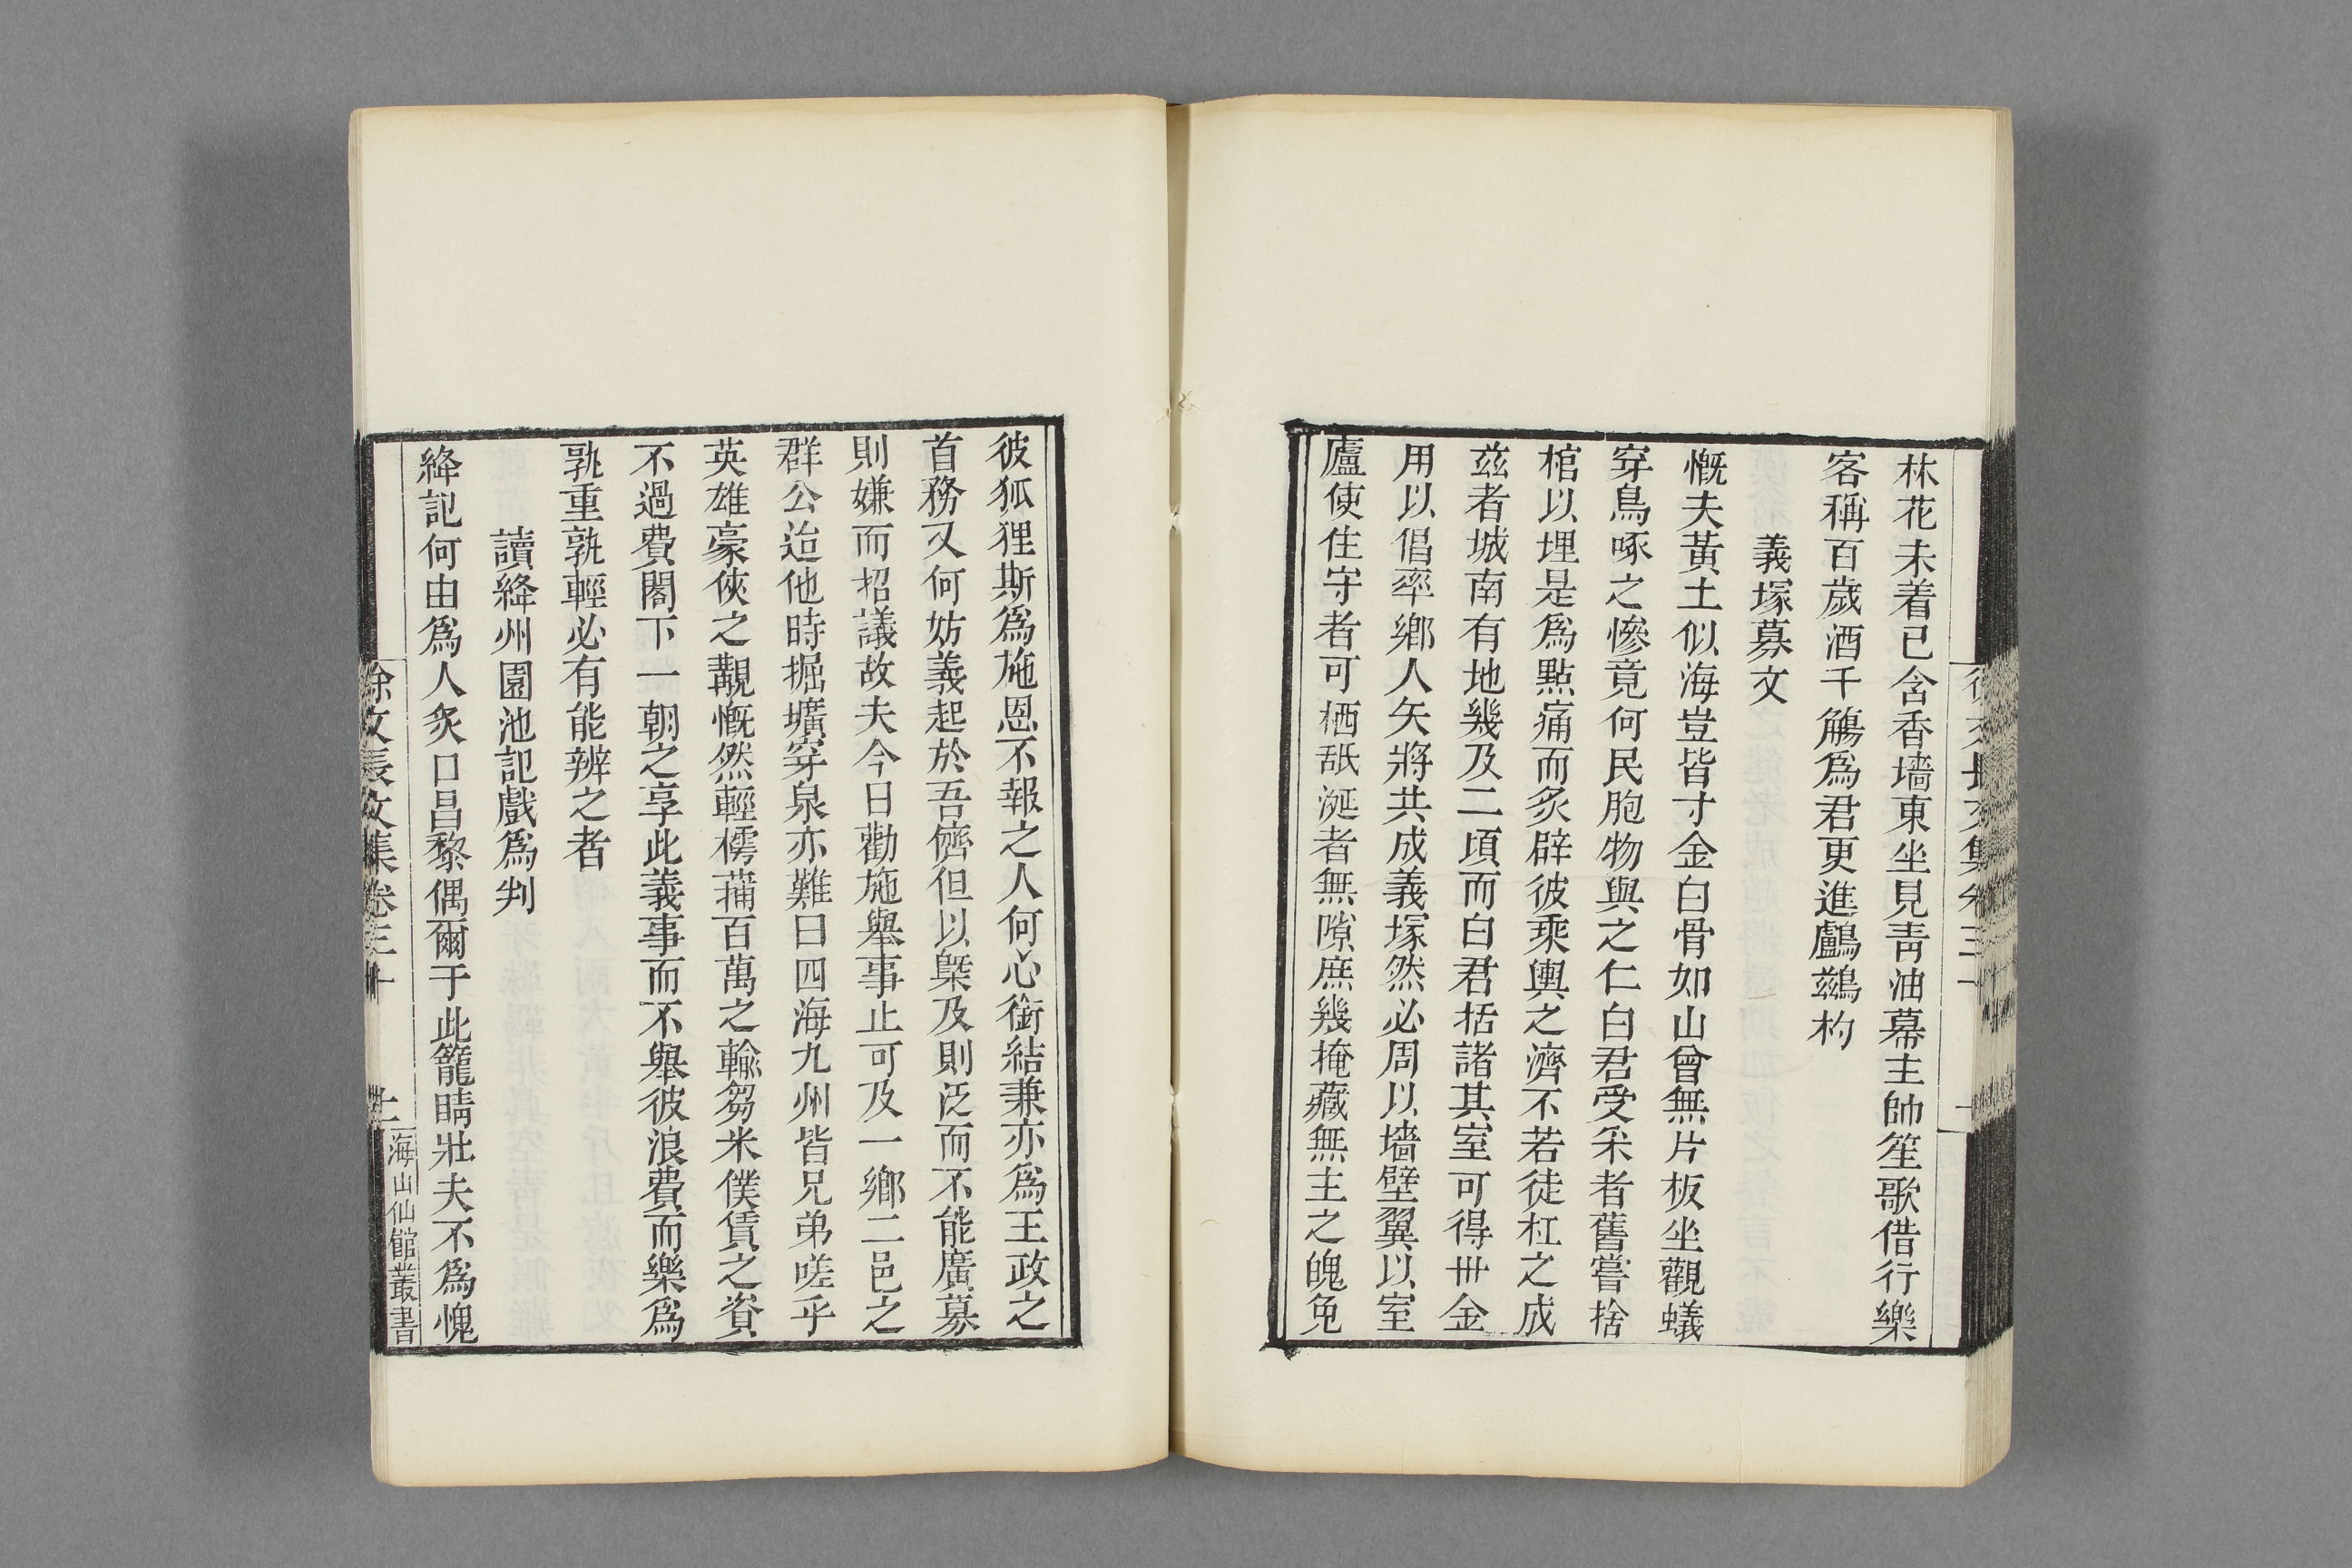 林花未着已含香墻東坐見靑油幕主帥笙歌借行樂
客稱百歲酒千觴爲君更進鸕鷀杓
義塚募文
慨夫黃土似海豈皆寸金白骨如山曾無片板坐觀蟻
穿鳥啄之慘竟何民胞物與之仁白君受釆者舊嘗捨
棺以埋是爲點痛而炙辟彼乘輿之濟不若徒杠之成
玆者城南有地幾及二頃而白君括諸其室可得卌金
用以倡率鄉人矢將共成義塚然必周以墻壁翼以室
廬使住守者可栖舐涎者無隙庶幾掩藏無主之魄免
彼狐狸斯爲施恩不報之人何心銜結兼亦爲王政之
首務又何妨義起於吾儕但以槩及則泛而不能廣募
則嫌而招議故夫今日勸施舉事止可及一鄉二邑之
群公迨他時掘壙穿泉亦難曰四海九州皆兄弟嗟乎
英雄豪俠之覯慨然輕樗蒱百萬之輸芻米僕賃之資
不過費閣下一朝之享此義事而不舉彼浪費而樂爲
孰重孰輕必有能辨之者
讀絳州園池記戲爲判
絳記何由爲人炙口昌黎偶爾于此籠睛壯夫不爲愧
徐文長文集卷三十
海山仙館叢書